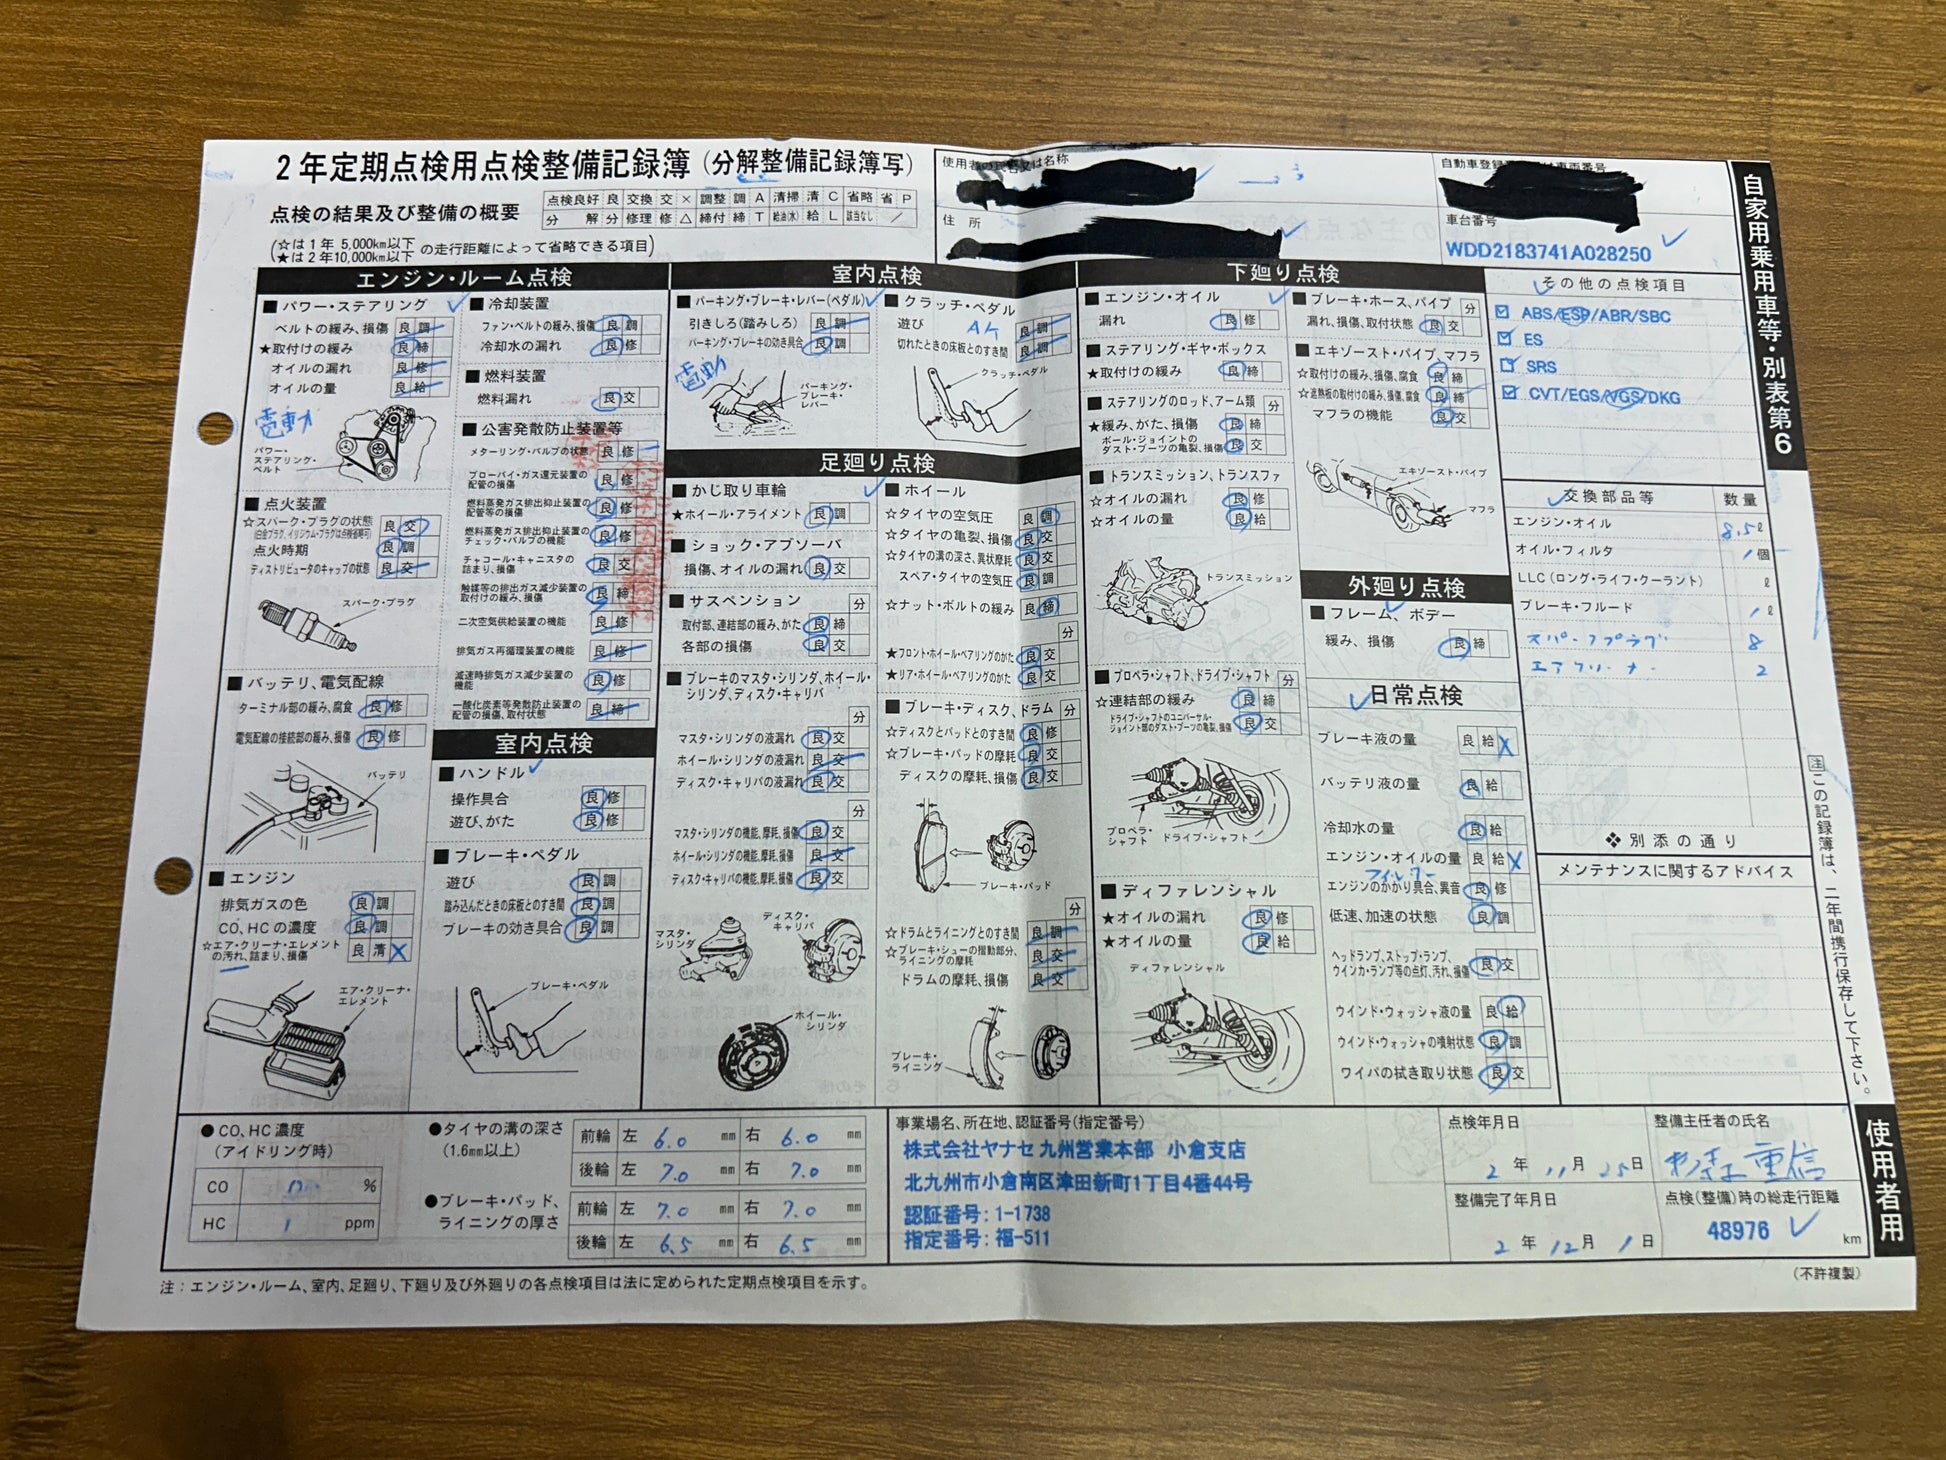 2年定期点検用点検整備記録簿(分解整備記録簿写)
点検の結果及び整備の概要
点検良好 良 交換 交 × 調整 調 A 清掃 清 C 省略 省 P
分解 分 修理 修 △ 締付 締 T 給油(水) 給 L 該当なし ／
(☆は1年 5,000km以下
★は2年10,000km以下 の走行距離によって省略できる項目)
住所
車台番号
WDD2183741A028250
自家用乗用車等・別表第6
エンジン・ルーム点検
■パワー・ステアリング
ベルトの緩み、損傷 良 調
★取付けの緩み 良 締
オイルの漏れ 良 修
オイルの量 良 給
電動
パワー・ステアリング・ベルト
■点火装置
☆スパーク・プラグの状態 良 交
(白金プラグ、イリジウム・プラグは点検省略可)
点火時期 良 調
ディストリビュータのキャップの状態 良 交
スパーク・プラグ
■バッテリ、電気配線
ターミナル部の緩み、腐食 良 修
電気配線の接続部の緩み、損傷 良 修
バッテリ
■エンジン
排気ガスの色 良 調
CO、HCの濃度 良 調
☆エア・クリーナ・エレメントの汚れ、詰まり、損傷 良 清 ×
エア・クリーナ・エレメント
■冷却装置
ファン・ベルトの緩み、損傷 良 調
冷却水の漏れ 良 修
■燃料装置
燃料漏れ 良 交
■公害発散防止装置等
メターリング・バルブの状態 良 修
ブローバイ・ガス還元装置の配管の損傷 良 修
燃料蒸発ガス排出抑止装置の配管等の損傷 良 修
燃料蒸発ガス排出抑止装置のチェック・バルブの機能 良 修
チャコール・キャニスタの詰まり、損傷 良 交
触媒等の排出ガス減少装置の取付けの緩み、損傷 良 締
二次空気供給装置の機能 良 修
排気ガス再循環装置の機能 良 修
減速時排気ガス減少装置の機能 良 修
一酸化炭素等発散防止装置の配管の損傷、取付状態 良 締
室内点検
■ハンドル
操作具合 良 修
遊び、がた 良 修
■ブレーキ・ペダル
遊び 良 調
踏み込んだときの床板とのすき間 良 調
ブレーキの効き具合 良 調
ブレーキ・ペダル
室内点検
■パーキング・ブレーキ・レバー(ペダル)
引きしろ(踏みしろ) 良 調
パーキング・ブレーキの効き具合 良 調
電動
パーキング・ブレーキ・レバー
■クラッチ・ペダル
遊び 良 調
切れたときの床板とのすき間 良 調
クラッチ・ペダル
足廻り点検
■かじ取り車輪
★ホイール・アライメント 良 調
■ショック・アブソーバ
損傷、オイルの漏れ 良 交
■サスペンション 分
取付部、連結部の緩み、がた 良 締
各部の損傷 良 交
■ブレーキのマスタ・シリンダ、ホイール・シリンダ、ディスク・キャリパ
分
マスタ・シリンダの液漏れ 良 交
ホイール・シリンダの液漏れ 良 交
ディスク・キャリパの液漏れ 良 交
分
マスタ・シリンダの機能、摩耗、損傷 良 交
ホイール・シリンダの機能、摩耗、損傷 良 交
ディスク・キャリパの機能、摩耗、損傷 良 交
マスタ・シリンダ
ディスク・キャリパ
ホイール・シリンダ
■ホイール
☆タイヤの空気圧 良 調
☆タイヤの亀裂、損傷 良 交
☆タイヤの溝の深さ、異状摩耗 良 交
スペア・タイヤの空気圧 良 調
☆ナット・ボルトの緩み 良 締
分
★フロント・ホイール・ベアリングのがた 良 交
★リア・ホイール・ベアリングのがた 良 交
■ブレーキ・ディスク、ドラム 分
☆ディスクとパッドとのすき間 良 修
☆ブレーキ・パッドの摩耗 良 交
ディスクの摩耗、損傷 良 交
ブレーキ・パッド
分
☆ドラムとライニングとのすき間 良 調
☆ブレーキ・シューの摺動部分、ライニングの摩耗 良 交
ドラムの摩耗、損傷 良 交
ブレーキ・ライニング
下廻り点検
■エンジン・オイル
漏れ 良 修
■ステアリング・ギヤ・ボックス
★取付けの緩み 良 締
■ステアリングのロッド、アーム類 分
★緩み、がた、損傷 良 締
ボール・ジョイントのダスト・ブーツの亀裂、損傷 良 交
■トランスミッション、トランスファ
☆オイルの漏れ 良 修
☆オイルの量 良 給
トランスミッション
■プロペラ・シャフト、ドライブ・シャフト 分
☆連結部の緩み 良 締
ドライブ・シャフトのユニバーサル・ジョイント部のダスト・ブーツの亀裂、損傷 良 交
プロペラ・シャフト
ドライブ・シャフト
■ディファレンシャル
★オイルの漏れ 良 修
★オイルの量 良 給
ディファレンシャル
■ブレーキ・ホース、パイプ 分
漏れ、損傷、取付状態 良 交
■エキゾースト・パイプ、マフラ
☆取付けの緩み、損傷、腐食 良 締
☆遮熱板の取付けの緩み、損傷、腐食 良 締
マフラの機能 良 交
エキゾースト・パイプ
マフラ
外廻り点検
■フレーム、ボデー
緩み、損傷 良 締
日常点検
ブレーキ液の量 良 給 ×
バッテリ液の量 良 給
冷却水の量 良 給
エンジン・オイルの量 良 給 ×
フィルター
エンジンのかかり具合、異音 良 修
低速、加速の状態 良 調
ヘッドランプ、ストップ・ランプ、ウインカ・ランプ等の点灯、汚れ、損傷 良 交
ウインド・ウォッシャ液の量 良 給
ウインド・ウォッシャの噴射状態 良 調
ワイパの拭き取り状態 良 交
その他の点検項目
ABS/ESP/ABR/SBC
ES
SRS
CVT/EGS/VGS/DKG
交換部品等 数量
エンジン・オイル 8.5ℓ
オイル・フィルタ 1個
LLC(ロング・ライフ・クーラント) ℓ
ブレーキ・フルード 1ℓ
スパークプラグ 8
エアクリーナー 2
❖別添の通り
メンテナンスに関するアドバイス
注 この記録簿は、二年間携行保存して下さい。
使用者用
●CO、HC濃度
(アイドリング時)
CO 0 %
HC 1 ppm
●タイヤの溝の深さ
(1.6mm以上)
前輪 左 6.0 mm 右 6.0 mm
後輪 左 7.0 mm 右 7.0 mm
●ブレーキ・パッド、ライニングの厚さ
前輪 左 7.0 mm 右 7.0 mm
後輪 左 6.5 mm 右 6.5 mm
事業場名、所在地、認証番号(指定番号)
株式会社ヤナセ 九州営業本部 小倉支店
北九州市小倉南区津田新町1丁目4番44号
認証番号:1-1738
指定番号:福-511
点検年月日
2年 11月 25日
整備完了年月日
2年 12月 1日
整備主任者の氏名
点検(整備)時の総走行距離
48976 km
注:エンジン・ルーム、室内、足廻り、下廻り及び外廻りの各点検項目は法に定められた定期点検項目を示す。
(不許複製)